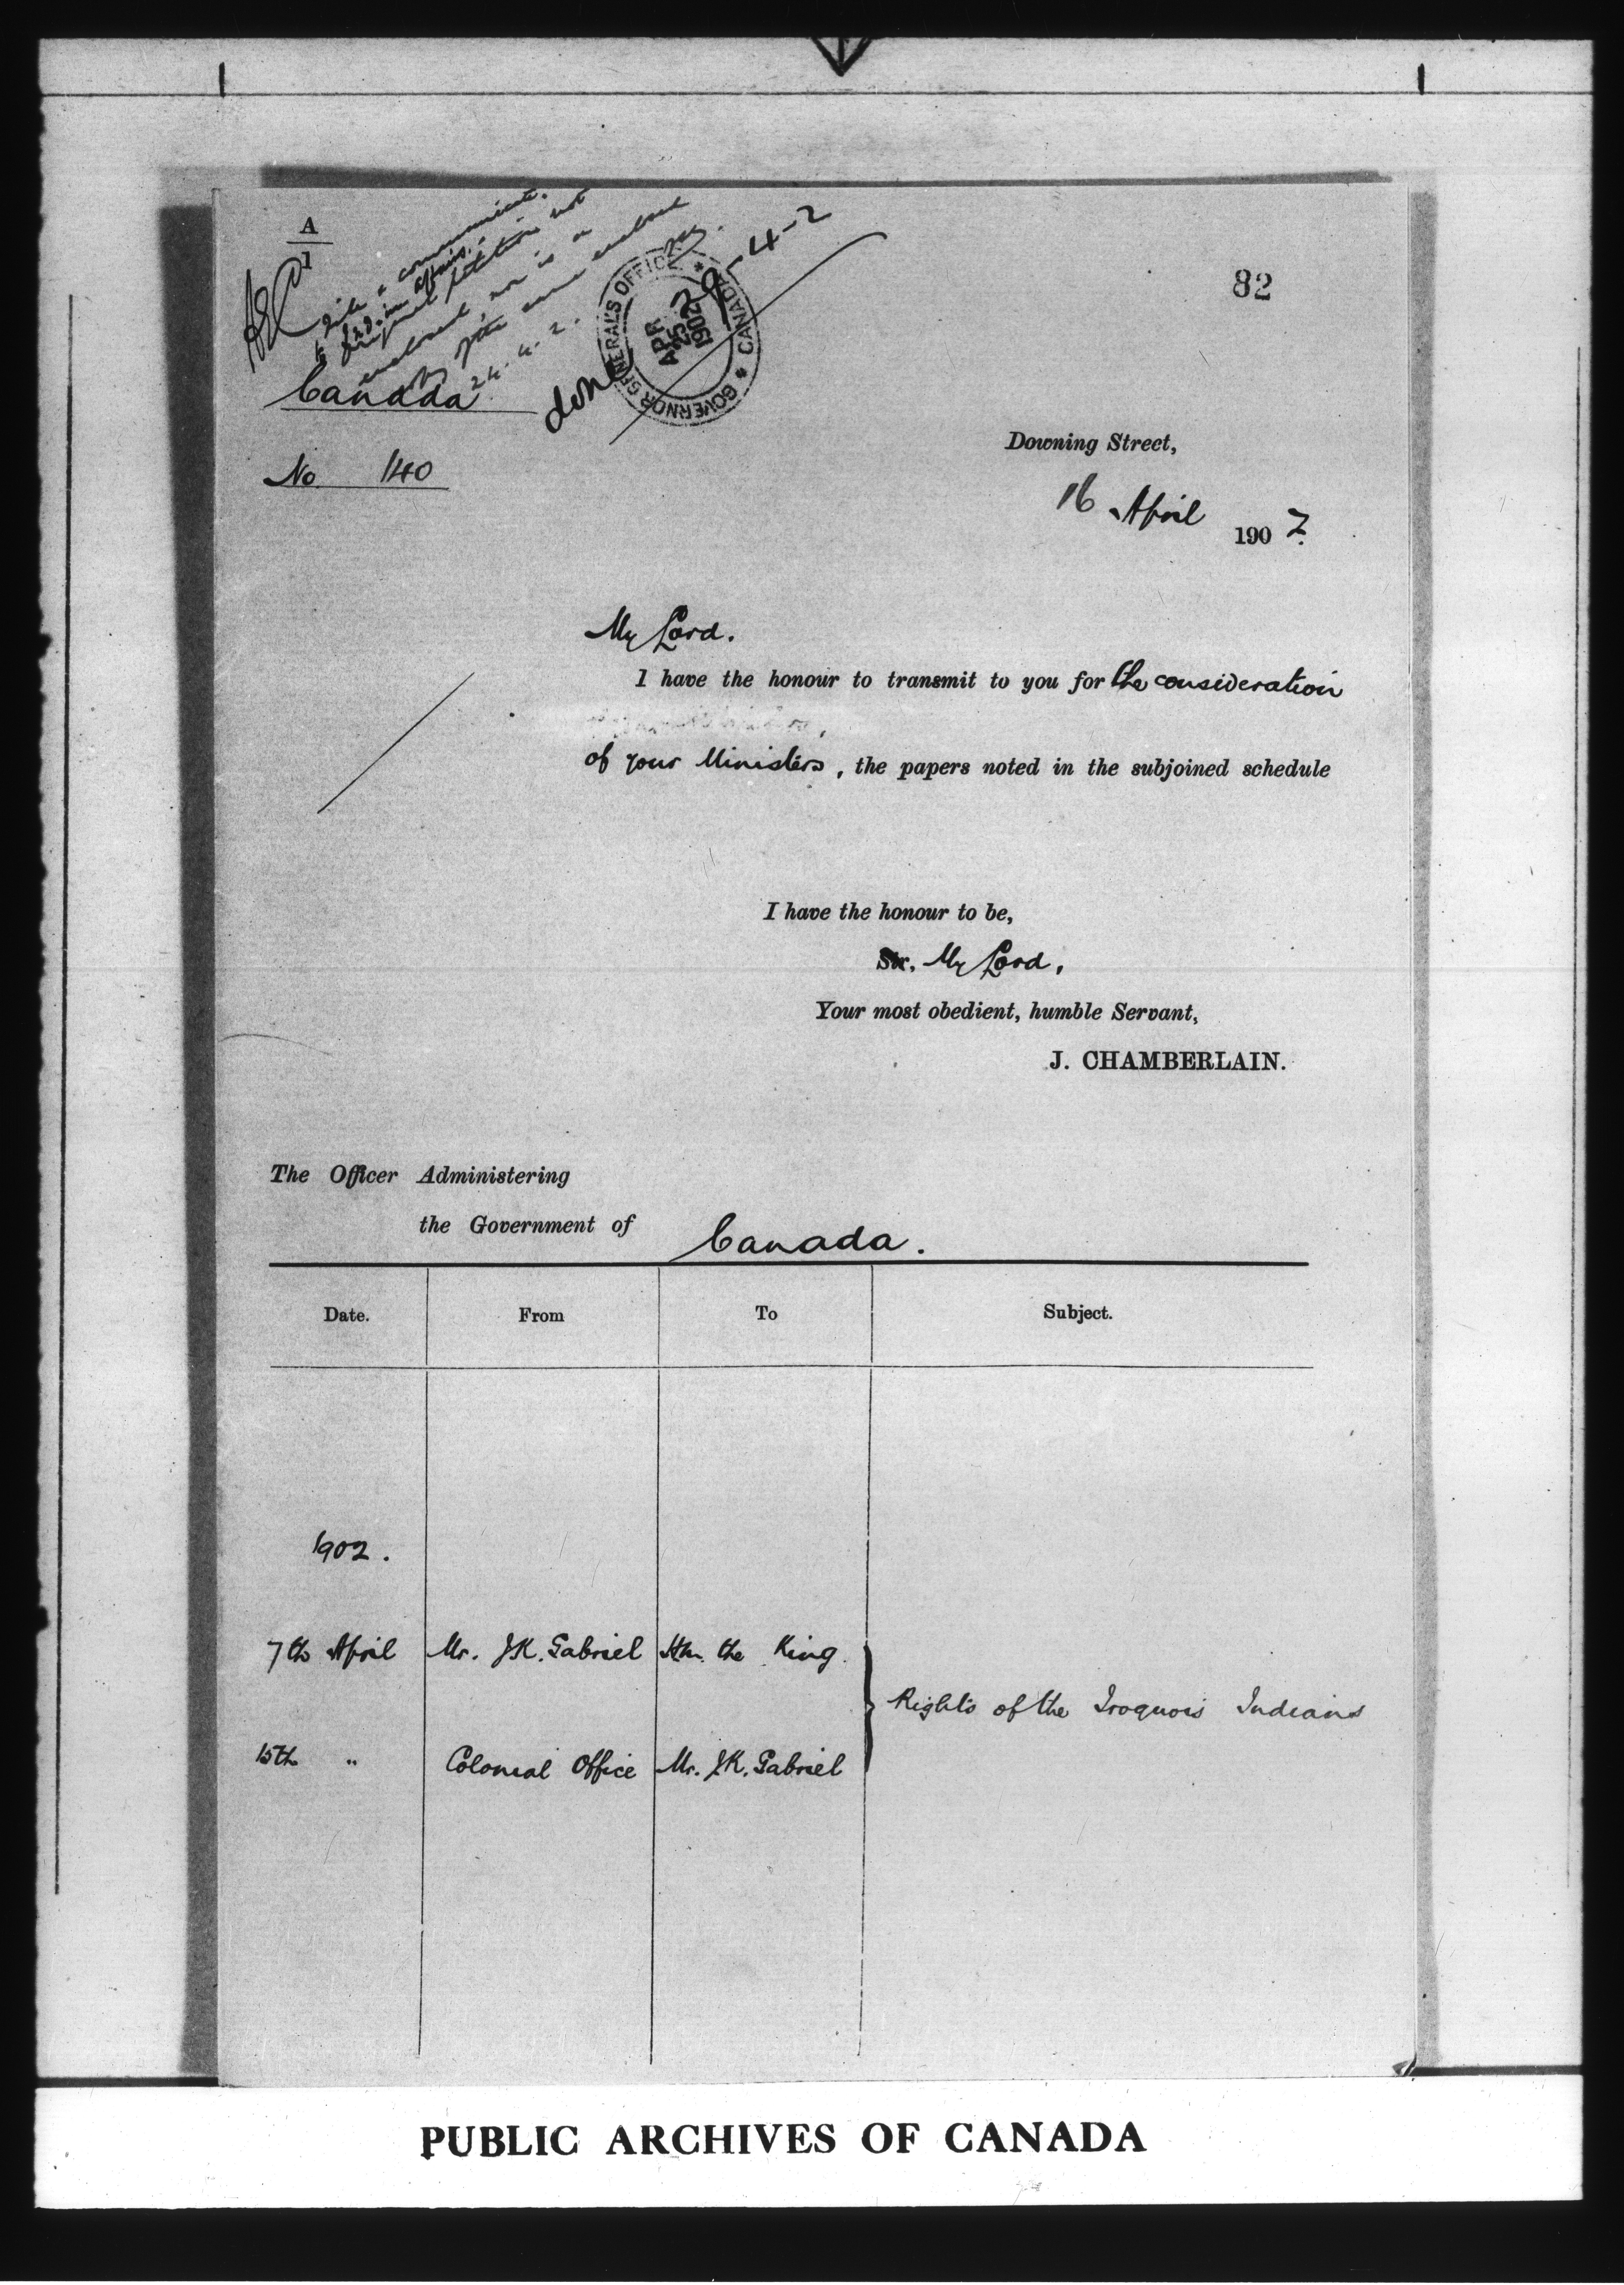 A
1
file & communicate
to Ind. Affairs.
Original petition not
enclosed nor is a
copy of the same enclosed
24.4.2.
done
25-4-2
GOVERNOR GENERAL'S OFFICE * CANADA *
APR
25
1902
82
Canada
No. 140
Downing Street,
16 April 1902.
My Lord.
I have the honour to transmit to you for the consideration
of your Ministers, the papers noted in the subjoined schedule
I have the honour to be,
Sir, My Lord,
Your most obedient, humble Servant,
J. CHAMBERLAIN.
The Officer Administering
the Government of Canada.
Date. From To Subject.
1902.
7th April Mr. J.K. Gabriel H.M. the King.
Rights of the Iroquois Indians
15th " Colonial Office Mr. J.K. Gabriel
PUBLIC ARCHIVES OF CANADA